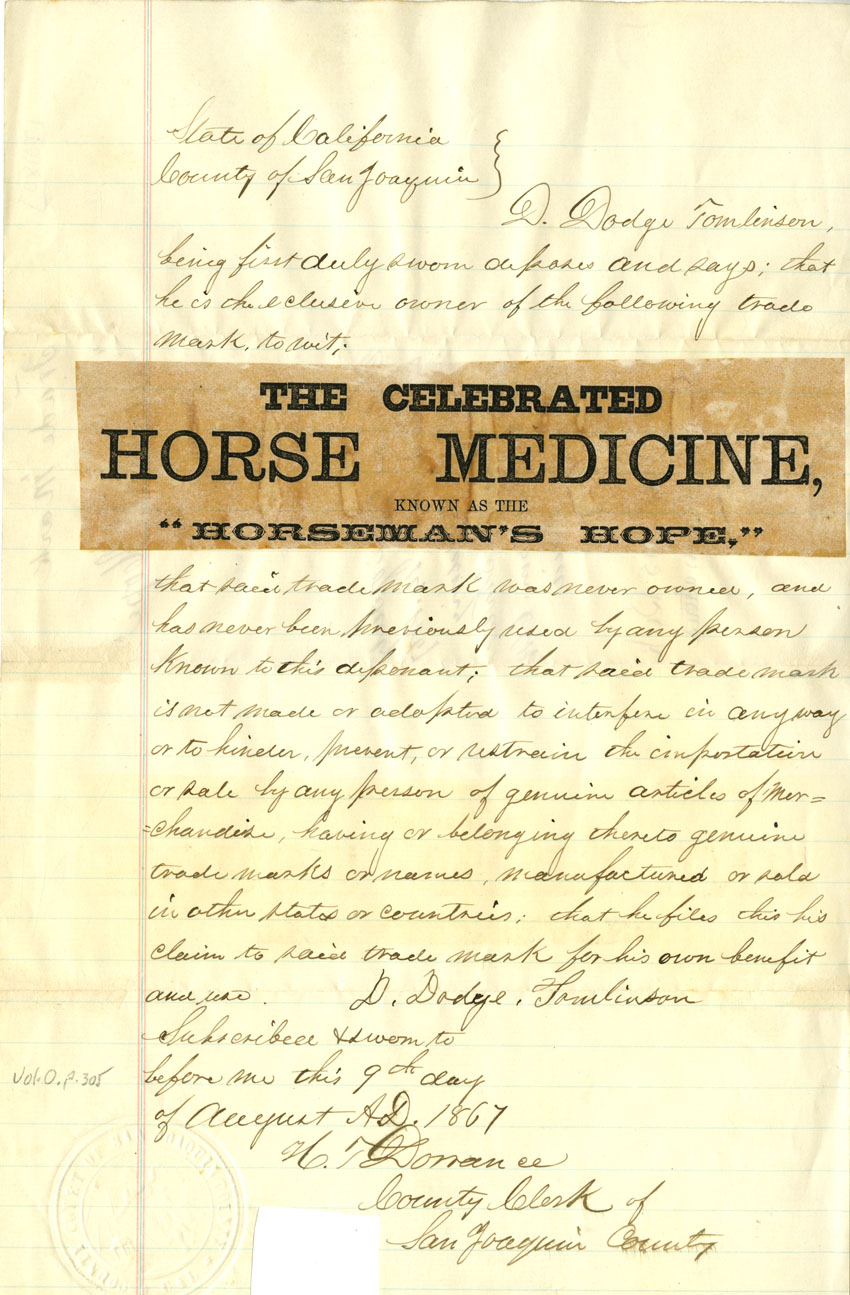 State of California
County of San Joaquin
D. Dodge Tomlinson,
being first duly sworn deposes and says; that
he is the exclusive owner of the following trade
mark, to wit;
THE CELEBRATED
HORSE MEDICINE,
KNOWN AS THE
"HORSEMAN'S HOPE,"
that said trade mark was never owned, and
has never been previously used by any person
known to this deponant; that said trade mark
is not made or adopted to interfere in any way
or to hinder, prevent, or restrain the importation
or sale by any person of genuine articles of Mer=
=chandize, having or belonging thereto genuine
trade marks or names, manufactured or sold
in other states or countries; that he files this his
claim to said trade mark for his own benefit
and use. D. Dodge. Tomlinson
Subscribed & sworn to
before me this 9th day
Vol. O. p. 305
of August A.D. 1867
H. T Dorrance
County Clerk of
San Joaquin County